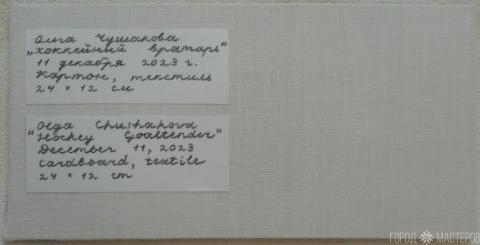 Ольга Чушакова
„Хоккейный вратарь“
11 декабря 2023 г.
Картон, текстиль
24 × 12 см
Olga Chushakova
“Hockey Goaltender”
December 11, 2023
Cardboard, textile
24 × 12 cm
ГОРОД МАСТЕРОВ